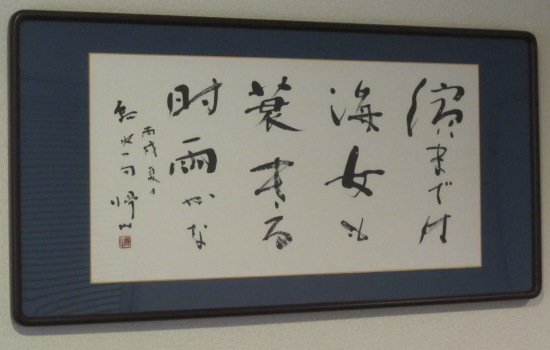 濱までは
海女も
蓑きる
时雨かな
丙戌夏日
瓢水一句